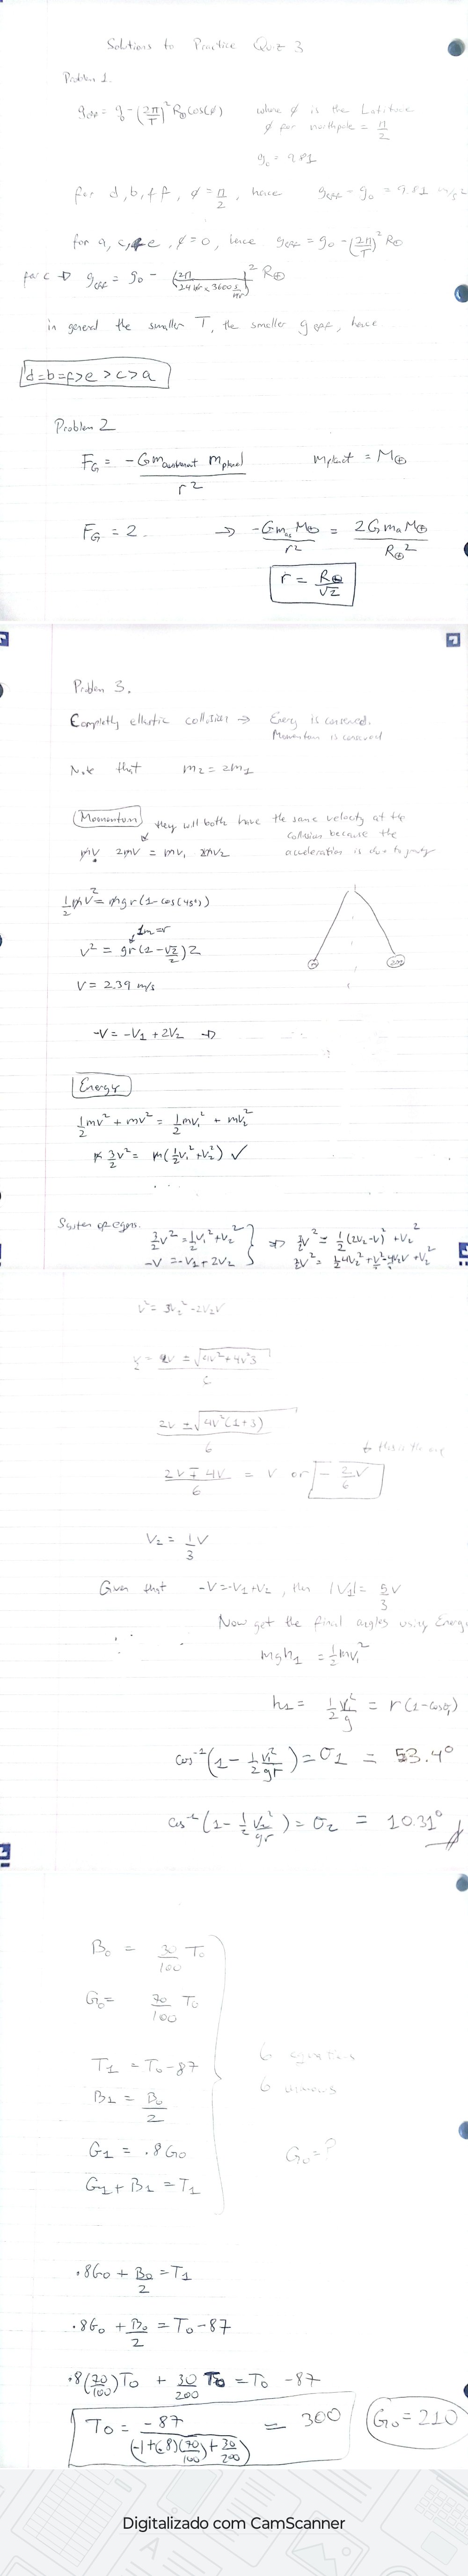 Solutions to Practice Quiz 3
Problem 1.
g_eff = g - (2π/T)² R⊕ cos(φ) where φ is the Latitude
φ for northpole = π/2
g₀ = 9.81
for d, b, f, φ = π/2, hence g_eff = g₀ = 9.81 m/s²
for a, c, e, φ = 0, hence g_eff = g₀ - (2π/T)² R⊕
for c → g_eff = g₀ - (2π/(24 hr × 3600 s/hr))² R⊕
in general the smaller T, the smaller g_eff, hence
d=b=f>e>c>a
Problem 2
F_G = -G m_astronaut m_planet / r² m_planet = M⊕
F_G = 2 → -G m_a M⊕ / r² = 2 G m_a M⊕ / R⊕²
r = R⊕/√2
Problem 3.
Completly ellastic collision → Energy is conserved.
Momentum is conserved
Note that m₂ = 2m₁
Momentum they will both have the same velocity at the
collision because the
mV 2mV = mV₁ 2mV₂ acceleration is due to gravity
½mV² = mgr(1-cos(45°))
1m=r
V² = gr(1-√2/2)2
V = 2.39 m/s
-V = -V₁ + 2V₂ →
Energy
½mv² + mv² = ½mv₁² + mv₂²
m 3/2 v² = m(½v₁² + v₂²) ✓
. . .
System of eqns. 3/2 v² = ½v₁² + v₂² } ⇒ 3/2 v² = ½(2v₂-v)² + v₂²
-V = -V₁ + 2V₂
V² = 3V₂² - 2V₂V
2V ± √(4V²(1+3)) / 6
← this is the one
2V ∓ 4V / 6 = V or -2/6 V
V₂ = 1/3 V
Given that -V = -V₁ + V₂, then |V₁| = 5/3 V
Now get the final angles using Energ
mgh₁ = ½mv₁²
h₁ = ½ v₁²/g = r(1-cosθ₁)
cos⁻¹(1 - ½ v₁²/gr) = σ₁ = 53.4°
cos⁻¹(1 - ½ v₂²/gr) = σ₂ = 10.31°
B₀ = 30/100 T₀
G₀ = 70/100 T₀
T₁ = T₀ - 87 6 equations
B₁ = B₀/2 6 unknowns
G₁ = .8G₀ G₀ = ?
G₁ + B₁ = T₁
.8G₀ + B₀/2 = T₁
.8G₀ + B₀/2 = T₀ - 87
.8(70/100)T₀ + 30/200 T₀ = T₀ - 87
T₀ = -87 / (-1+(.8)(70/100)+30/200) = 300 G₀ = 210
Digitalizado com CamScanner